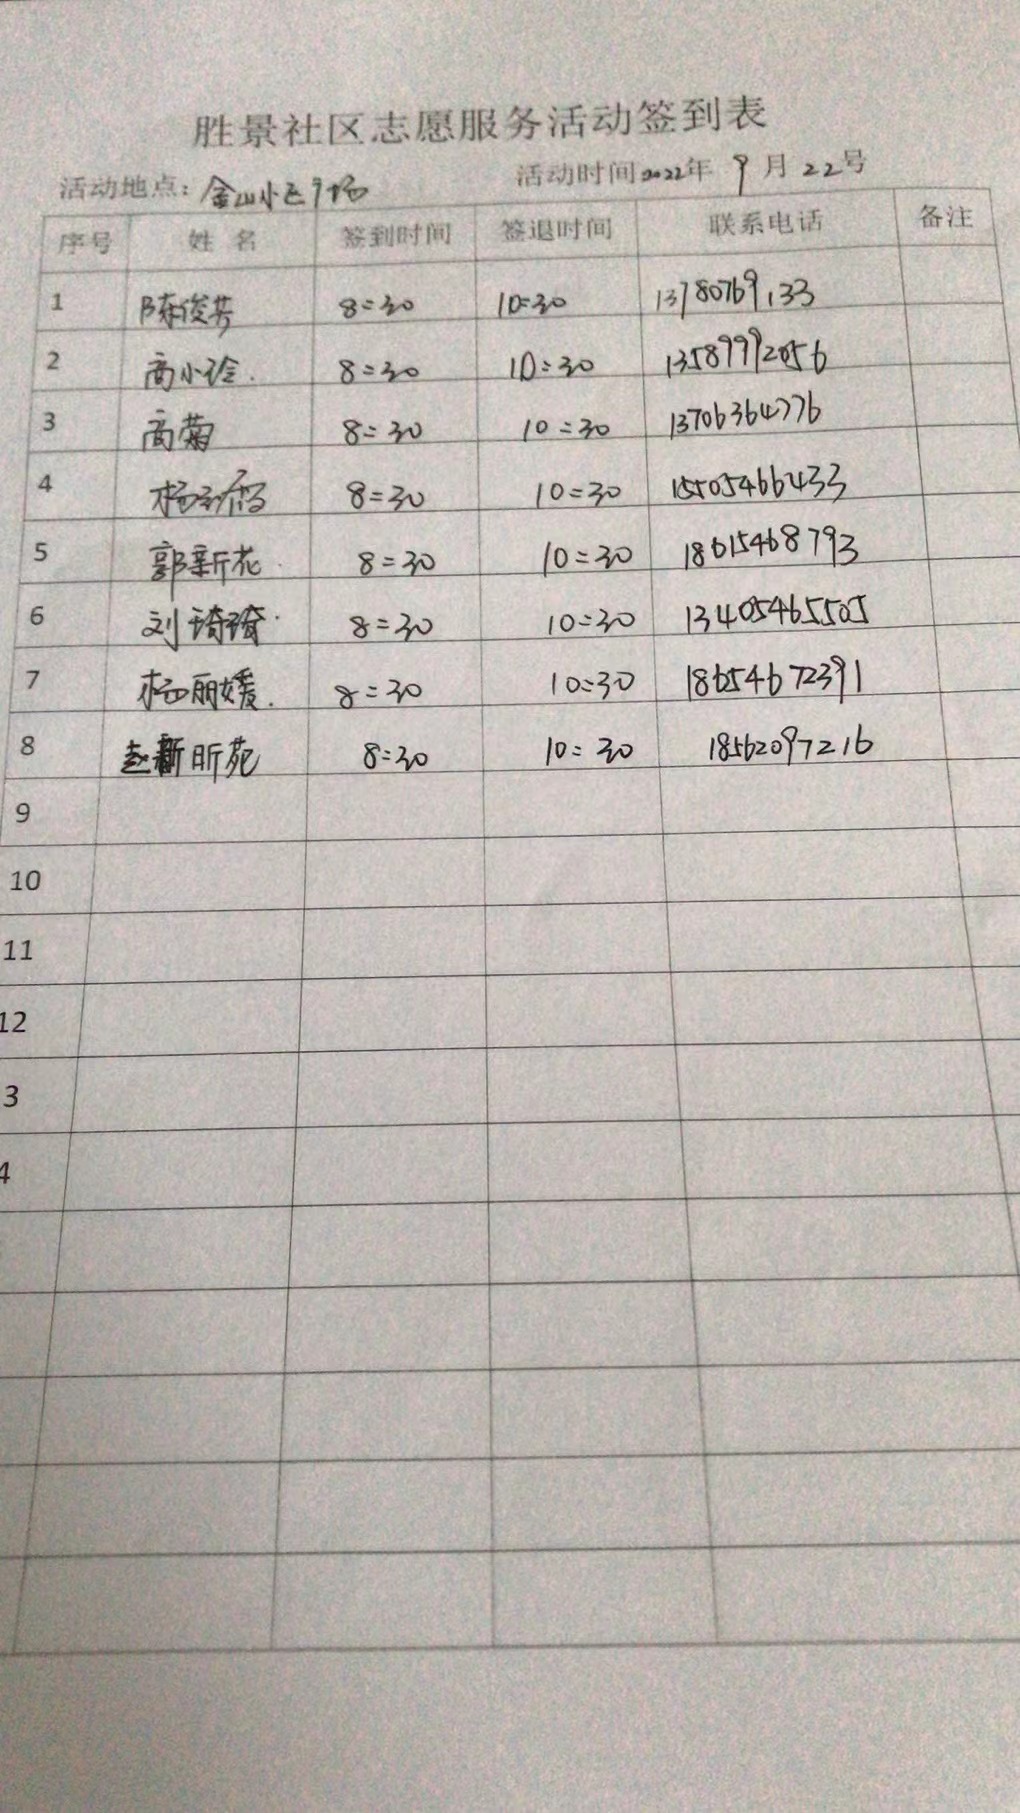 胜景社区志愿服务活动签到表
活动地点: 金山小区广场 活动时间2022年 9 月 22号
序号 姓 名 签到时间 签退时间 联系电话 备注
1 陈俊芳 8:30 10:30 13780769133
2 高小 8:30 10:30 13589992056
3 高菊 8:30 10:30 13706364776
4 杨 8:30 10:30 15505466433
5 郭新花 8:30 10:30 18615468793
6 刘琦琦 8:30 10:30 13405465505
7 杨丽媛. 8:30 10:30 18654672391
8 赵昕苑 8:30 10:30 18562097216
9
10
11
12
3
4